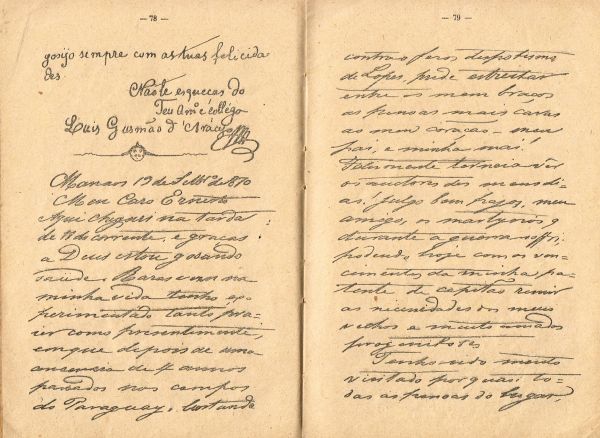 — 78 —
gosijo sempre com as tuas felicida-
des
Não te esqueças do
Teu Amº e collega
Luis Gusmão d'Araujo
Manaos 19 de S.bro de 1870
Meu Caro Ernesto
Aqui cheguei na tarde
de 17 do corrente, e graças
a Deus estou gosando
saude. Raras vezes na
minha vida tenho ex-
perimentado tanto pra-
zer como presentemente,
em que depois de uma
ausencia de 4 annos
passados nos campos
do Paraguay, luctando
— 79 —
contra o feros despotismo
de Lopes, pude estreitar
entre os meus braços
as pessoas mais caras
ao meu coração — meu
pai, e minha mai!
Felizmente torneia ver
os autores dos meus di-
as, julgo bem pagos, meu
amigo, os martyrios q
durante a guerra soffri,
podendo hoje com os ven-
cimentos da minha pa-
tente de capitão remir
as necessidades dos meus
velhos e muito amados
progenitores
Tenho sido muito
visitado por quasi to-
das as pessoas do lugar,